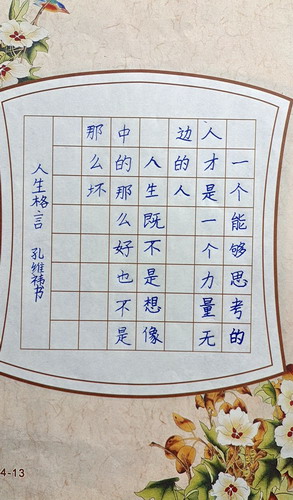 一个能够思考的
人才是一个力量无
边的人
人生既不是想像
中的那么好也不是
那么坏
人生格言 孔维书
4-13